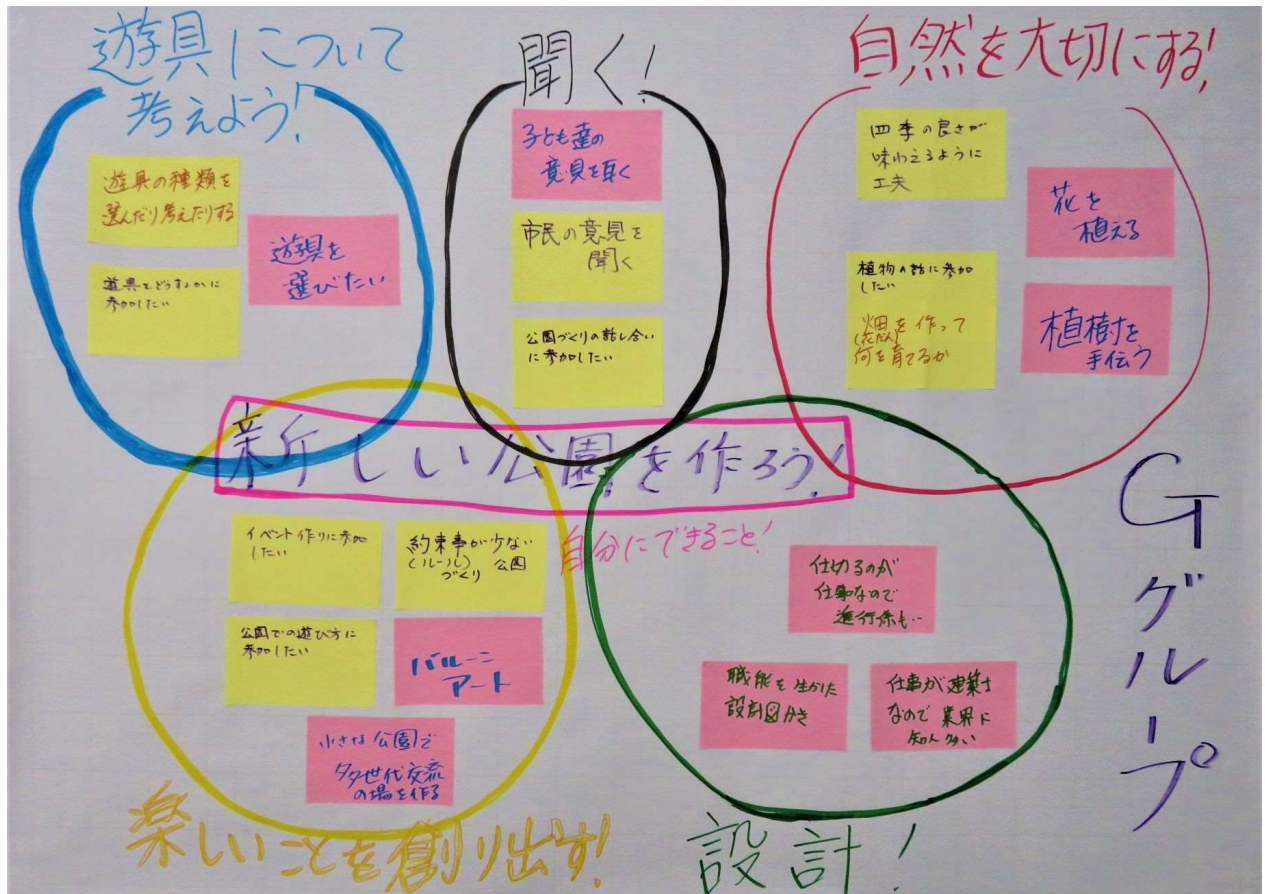 遊具について
考えよう!
遊具の種類を
選んだり考えたりする
遊具を
選びたい
道具をどうするかに
参加したい
聞く!
子ども達の
意見を聞く
市民の意見を
聞く
公園づくりの話し合い
に参加したい
自然を大切にする!
四季の良さが
味わえるように
工夫
花を
植える
植物の話に参加
したい
畑を作って
(花だん)
何を育てるか
植樹を
手伝う
新しい公園を作ろう!
自分にできること!
イベント作りに参加
したい
約束事が少ない
(ルール) 公園
づくり
公園での遊び方に
参加したい
バルーン
アート
小さな公園で
多世代交流
の場を作る
楽しいことを創り出す!
仕切るのが
仕事なので
進行係も…
職能を生かした
設計図
仕事が建築士
なので業界に
知人多い
設計!
Gグループ